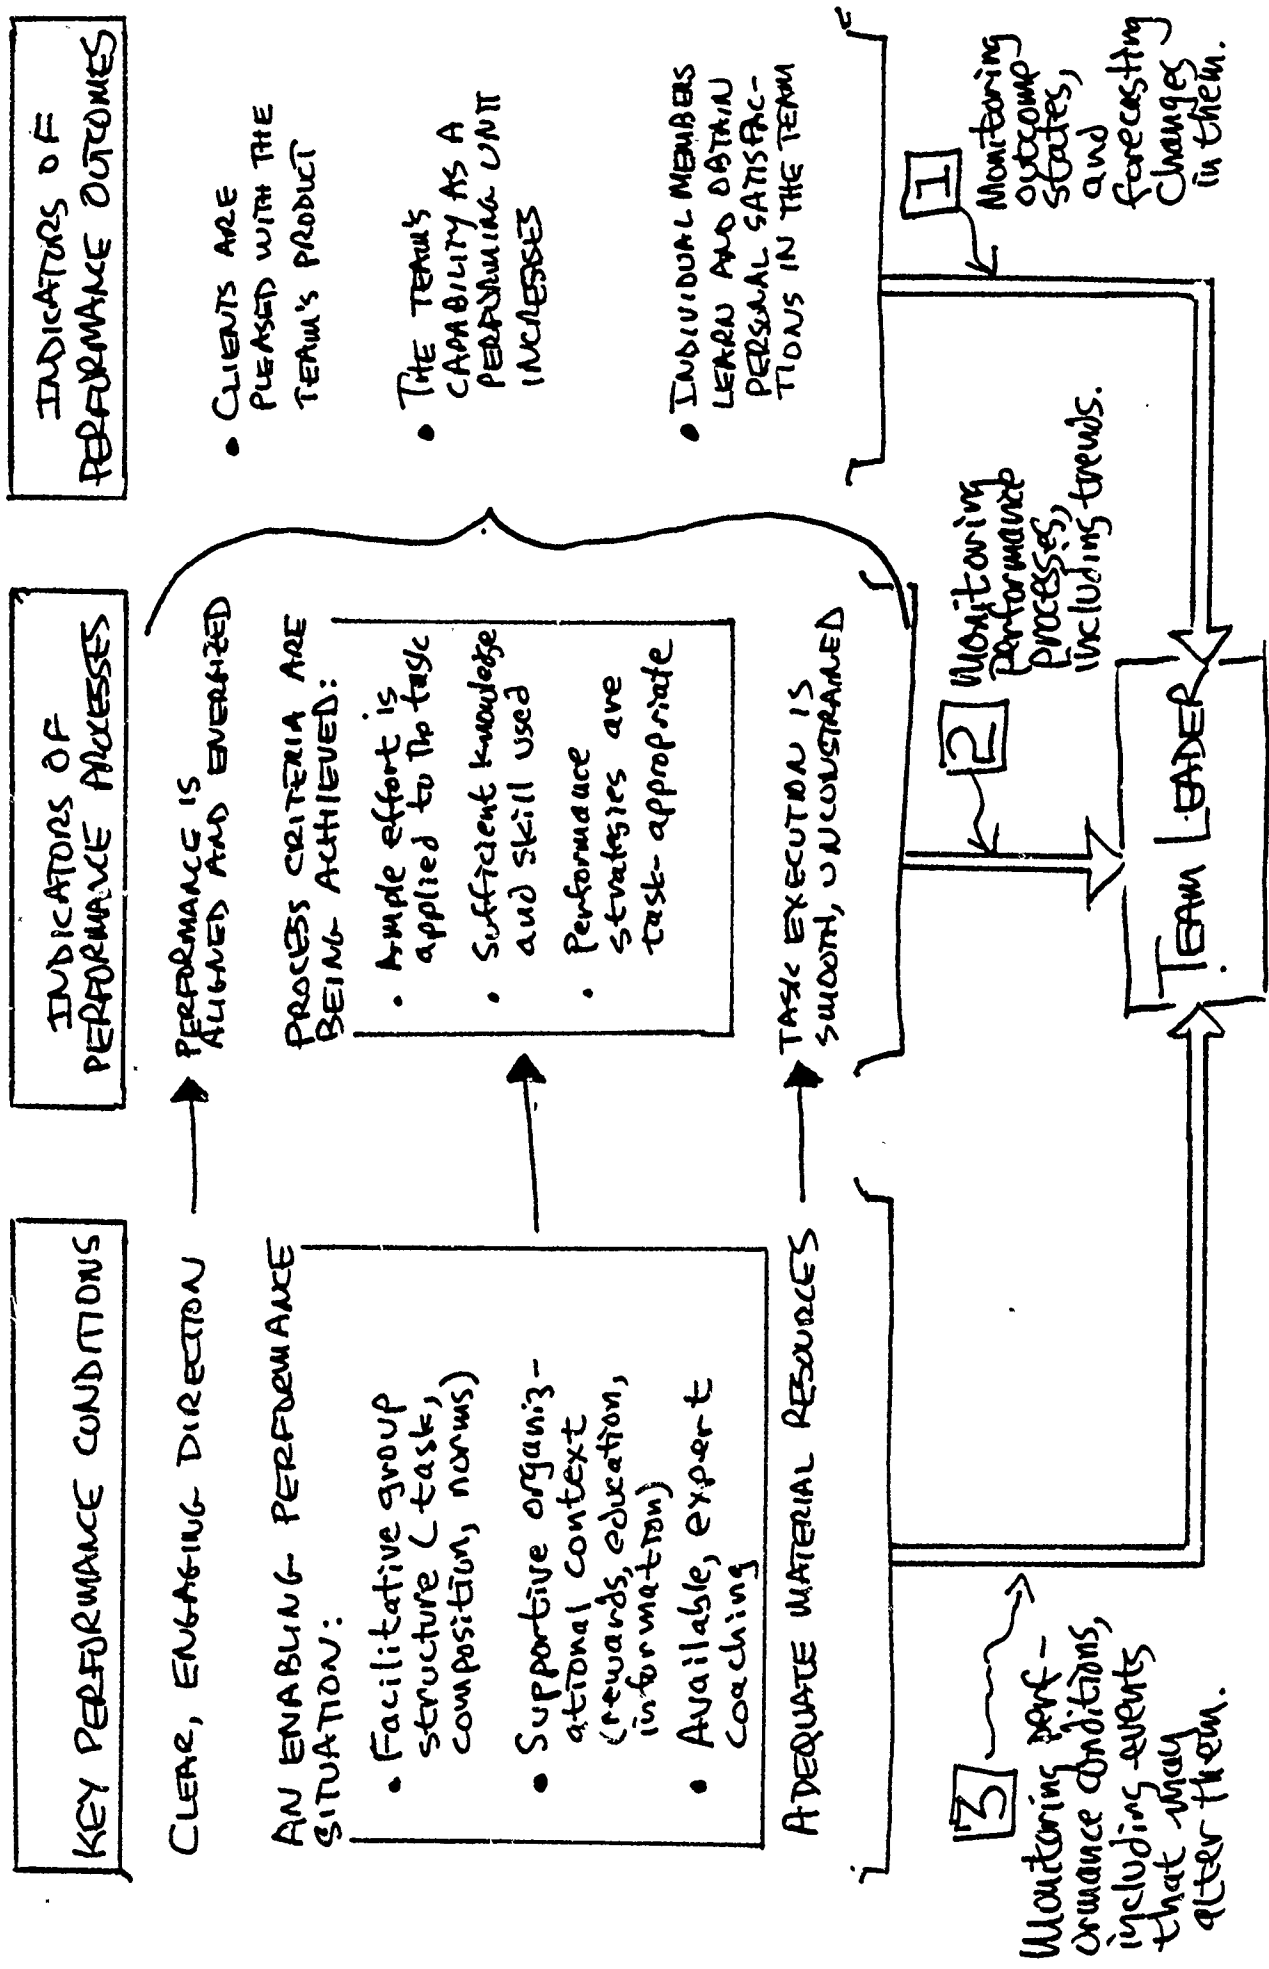 KEY PERFORMANCE CONDITIONS
CLEAR, ENGAGING DIRECTION
AN ENABLING PERFORMANCE
SITUATION:
• Facilitative group
structure (task,
composition, norms)
• Supportive organiz-
ational context
(rewards, education,
information)
• Available, expert
coaching
ADEQUATE MATERIAL RESOURCES
INDICATORS OF
PERFORMANCE PROCESSES
PERFORMANCE IS
ALIGNED AND ENERGIZED
PROCESS CRITERIA ARE
BEING ACHIEVED:
• Ample effort is
applied to the task
• Sufficient knowledge
and skill used
• Performance
strategies are
task-appropriate
TASK EXECUTION IS
SMOOTH, UNCONSTRAINED
INDICATORS OF
PERFORMANCE OUTCOMES
• CLIENTS ARE
PLEASED WITH THE
TEAM'S PRODUCT
• THE TEAM'S
CAPABILITY AS A
PERFORMING UNIT
INCREASES
• INDIVIDUAL MEMBERS
LEARN AND OBTAIN
PERSONAL SATISFAC-
TIONS IN THE TEAM
3
Monitoring perf-
ormance conditions,
including events
that may
alter them.
2
Monitoring
performance
processes,
including trends.
1
Monitoring
outcome
states,
and
forecasting
changes
in them.
TEAM LEADER